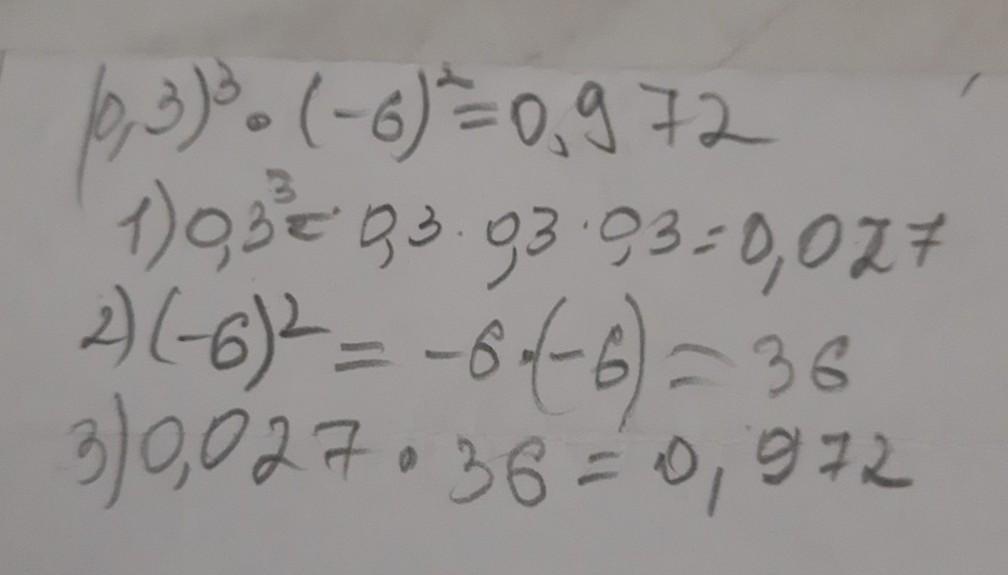 (0,3)³ • (-6)² = 0,972
1) 0,3³ = 0,3 · 0,3 · 0,3 = 0,027
2) (-6)² = -6 · (-6) = 36
3) 0,027 • 36 = 0,972